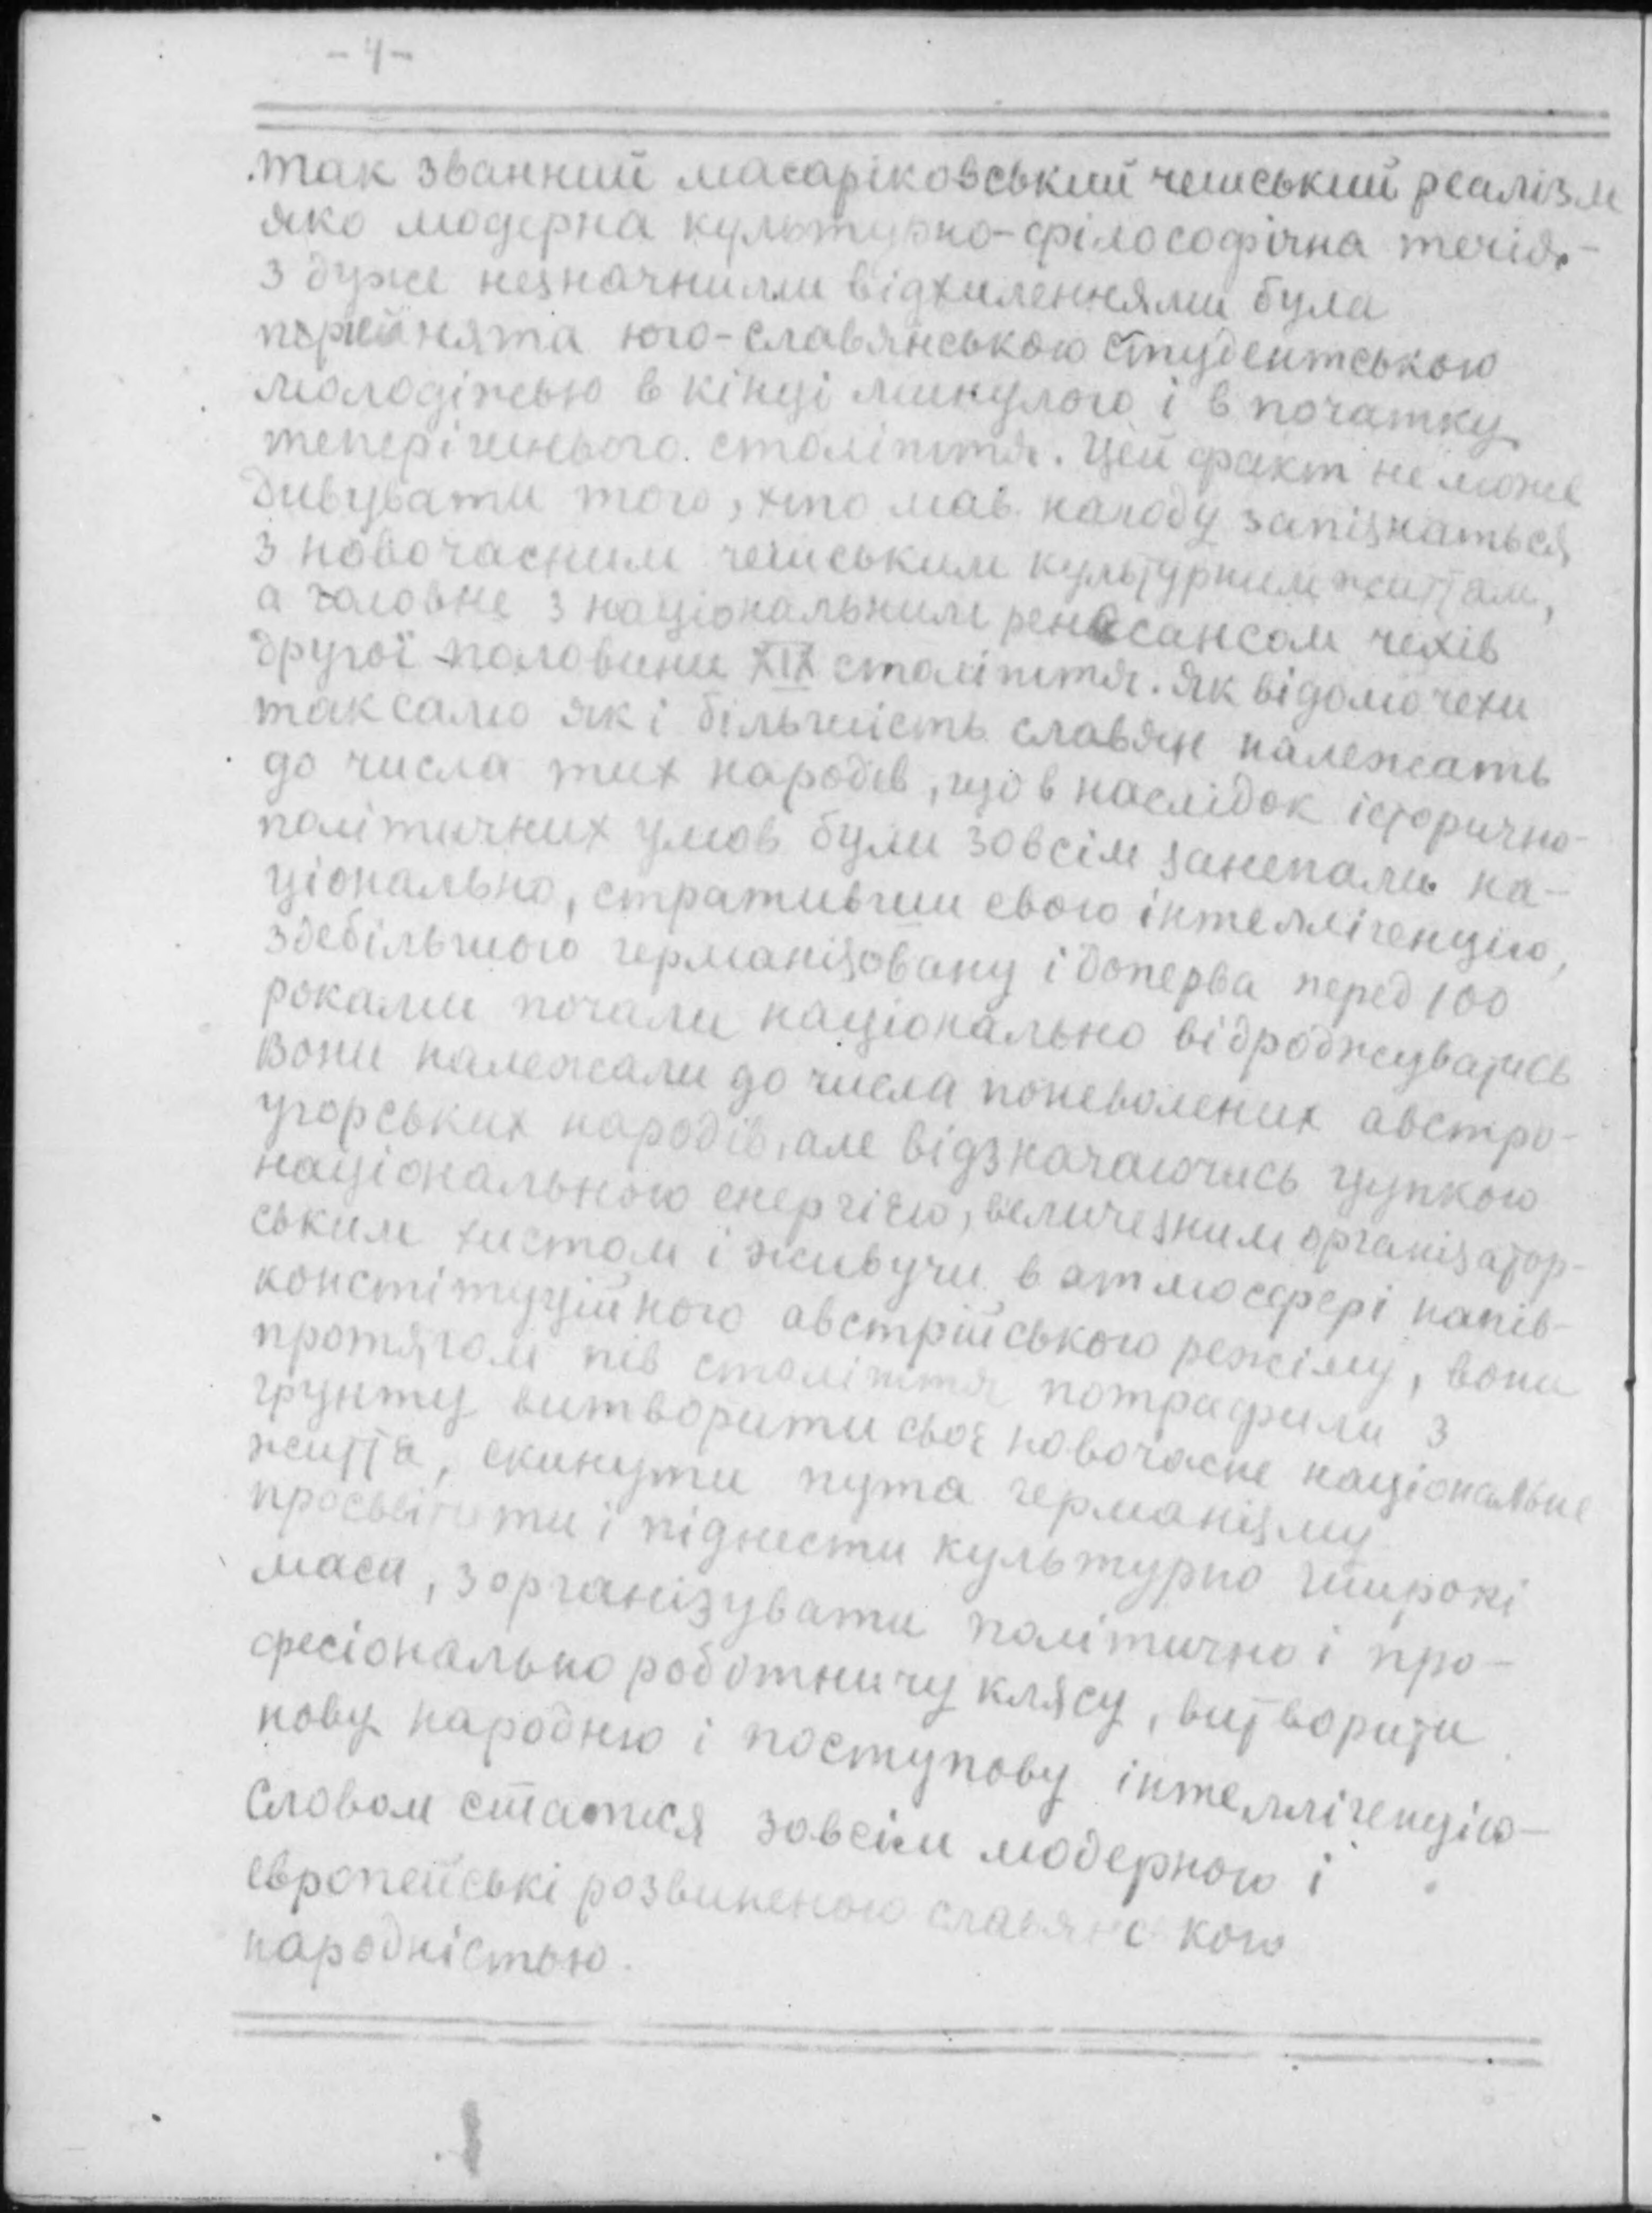 -4-
так званний масаріковський чешський реалізм
яко модерна культурно-філософічна течія -
з дуже незначними відхиленнями була
перейнята юго-славянською студентською
молодіжью в кінці минулого і в початку
теперішнього століття. Цей факт не може
дивувати того, хто мав нагоду запізнаться
з новочасним чешським культурним життам,
а головне з національним ренесансом чехів
другої половини XIX століття. Як відомо чехи
так само як і більшість славян належать
до числа тих народів, що в наслідок історично-
політичних умов були зовсім занепали на-
ціонально, стративши свою інтеллігенцію,
здебільшого германізовану і доперва перед 100
роками почали національно відроджуватись
Вони належали до числа поневолених австро-
угорських народів, але відзначаючись цупкою
національною енергією, величезним організатор-
ським хистом і живучи в атмосфері напів-
констітуційного австрійського режіму, вони
протягом пів століття потрафили з
грунту витворити своє новочасне національне
життя, скинути пута германізму
просьвітити і піднести культурно широкі
маси, зорганізувати політично і про-
фесіонально роботничу клясу, витворити
нову народню і поступову інтеллігенцію-
Словом статися зовсім модерною і
европейські розвиненою славянською
народністью.